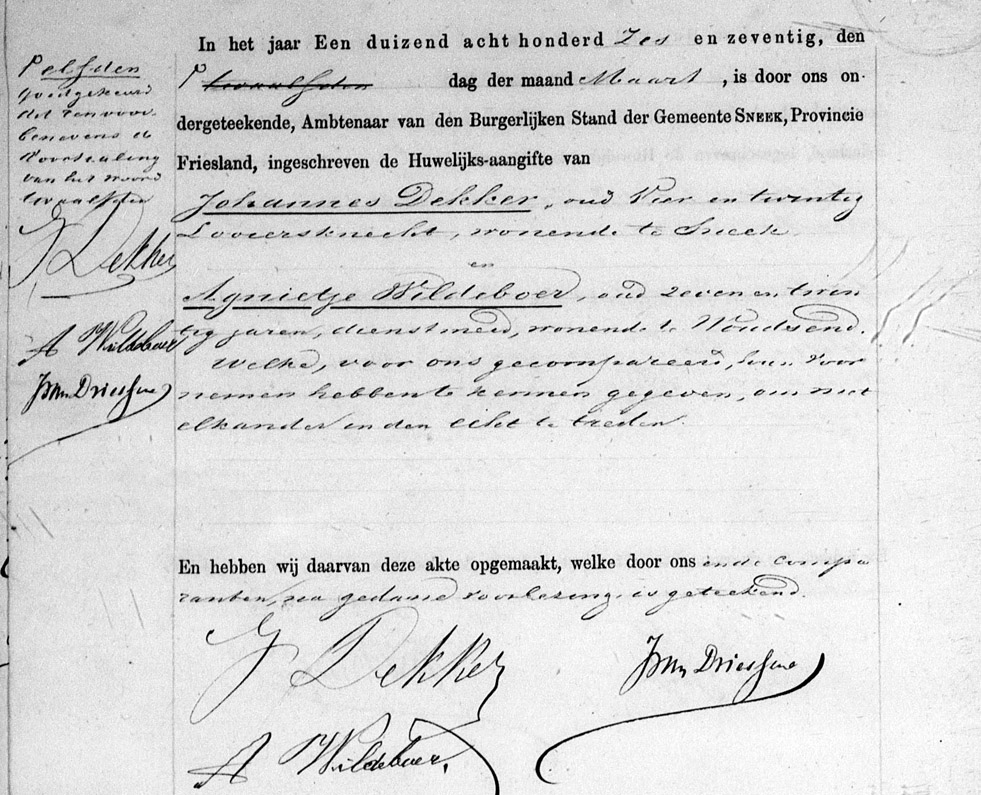 In het jaar Een duizend acht honderd Zes en zeventig, den
twaalfden dag der maand Maart, is door ons on-
dergeteekende, Ambtenaar van den Burgerlijken Stand der Gemeente SNEEK, Provincie
Friesland, ingeschreven de Huwelijks-aangifte van
Johannes Dekker, oud Vier en twintig
Looiersknecht, wonende te Sneek
en
Agnietje Wildeboer, oud zeven en twin
tig jaren, dienstmeid, wonende te Woudsend.
Welke, voor ons gecompareerd, hun voor
nemen hebben te kennen gegeven, om met
elkander in den echt te treden.
En hebben wij daarvan deze akte opgemaakt, welke door ons en de compa
ranten, na gedane voorlezing is geteekend.
J Dekker
A Wildeboer.
Driessen
elfden
goedgekeurd
dit renvooi
benevens de
doorhaling
van het woord
twaalfden
J Dekker
A Wildeboer
Driessen